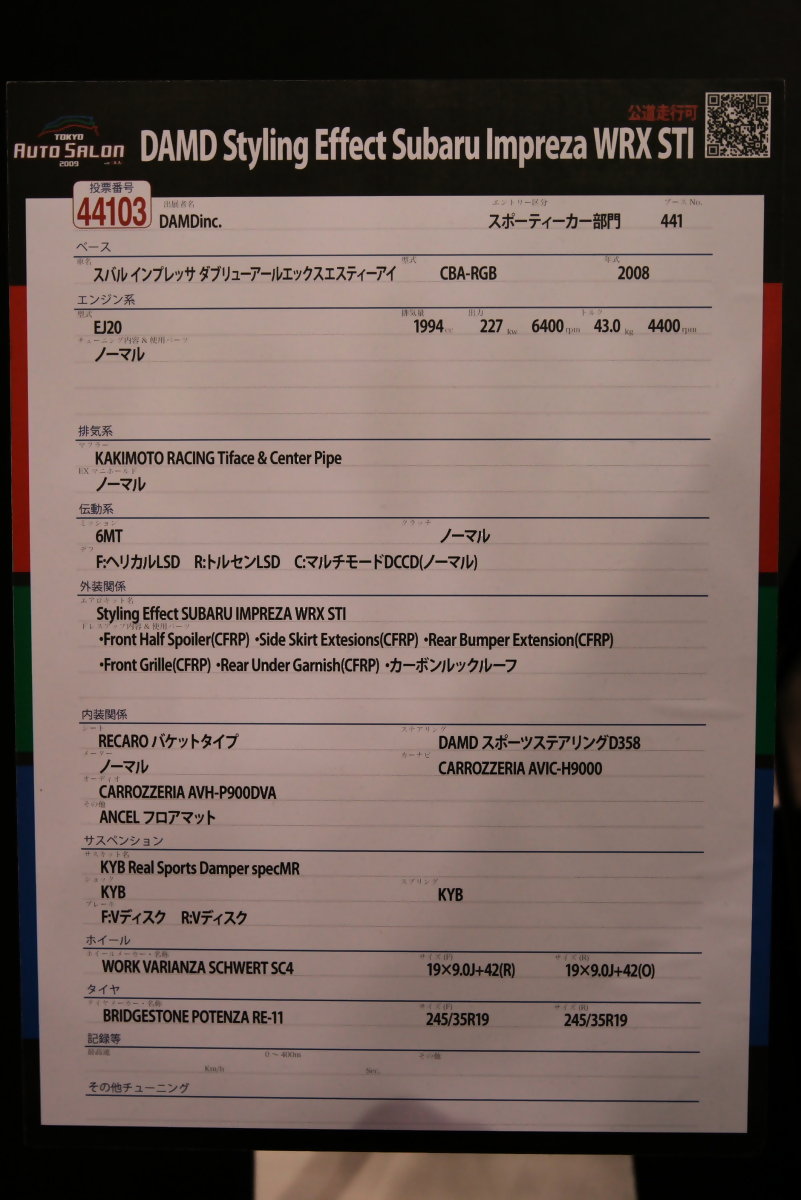 公道走行可
TOKYO
AUTO SALON
2009
DAMD Styling Effect Subaru Impreza WRX STI
投票番号
44103
出展者名
エントリー区分
ブースNo.
DAMDinc.
スポーティーカー部門
441
ベース
車名
型式
年式
スバル インプレッサ ダブリューアールエックスエスティーアイ
CBA-RGB
2008
エンジン系
型式
排気量
出力
トルク
EJ20
1994cc
227kw
6400rpm
43.0kg
4400rpm
チューニング内容&使用パーツ
ノーマル
排気系
マフラー
KAKIMOTO RACING Tiface & Center Pipe
EXマニホールド
ノーマル
伝動系
ミッション
クラッチ
6MT
ノーマル
デフ
F:ヘリカルLSD R:トルセンLSD C:マルチモードDCCD(ノーマル)
外装関係
エアロキット名
Styling Effect SUBARU IMPREZA WRX STI
ドレスアップ内容&使用パーツ
・Front Half Spoiler(CFRP) ・Side Skirt Extesions(CFRP) ・Rear Bumper Extension(CFRP)
・Front Grille(CFRP) ・Rear Under Garnish(CFRP) ・カーボンルックルーフ
内装関係
シート
ステアリング
RECARO バケットタイプ
DAMD スポーツステアリングD358
メーター
カーナビ
ノーマル
CARROZZERIA AVIC-H9000
オーディオ
CARROZZERIA AVH-P900DVA
その他
ANCEL フロアマット
サスペンション
サスキット名
KYB Real Sports Damper specMR
ショック
スプリング
KYB
KYB
ブレーキ
F:Vディスク R:Vディスク
ホイール
ホイールメーカー・名称
サイズ(F)
サイズ(R)
WORK VARIANZA SCHWERT SC4
19×9.0J+42(R)
19×9.0J+42(O)
タイヤ
タイヤメーカー・名称
サイズ(F)
サイズ(R)
BRIDGESTONE POTENZA RE-11
245/35R19
245/35R19
記録等
最高速
0～400m
その他
Km/h
Sec.
その他チューニング